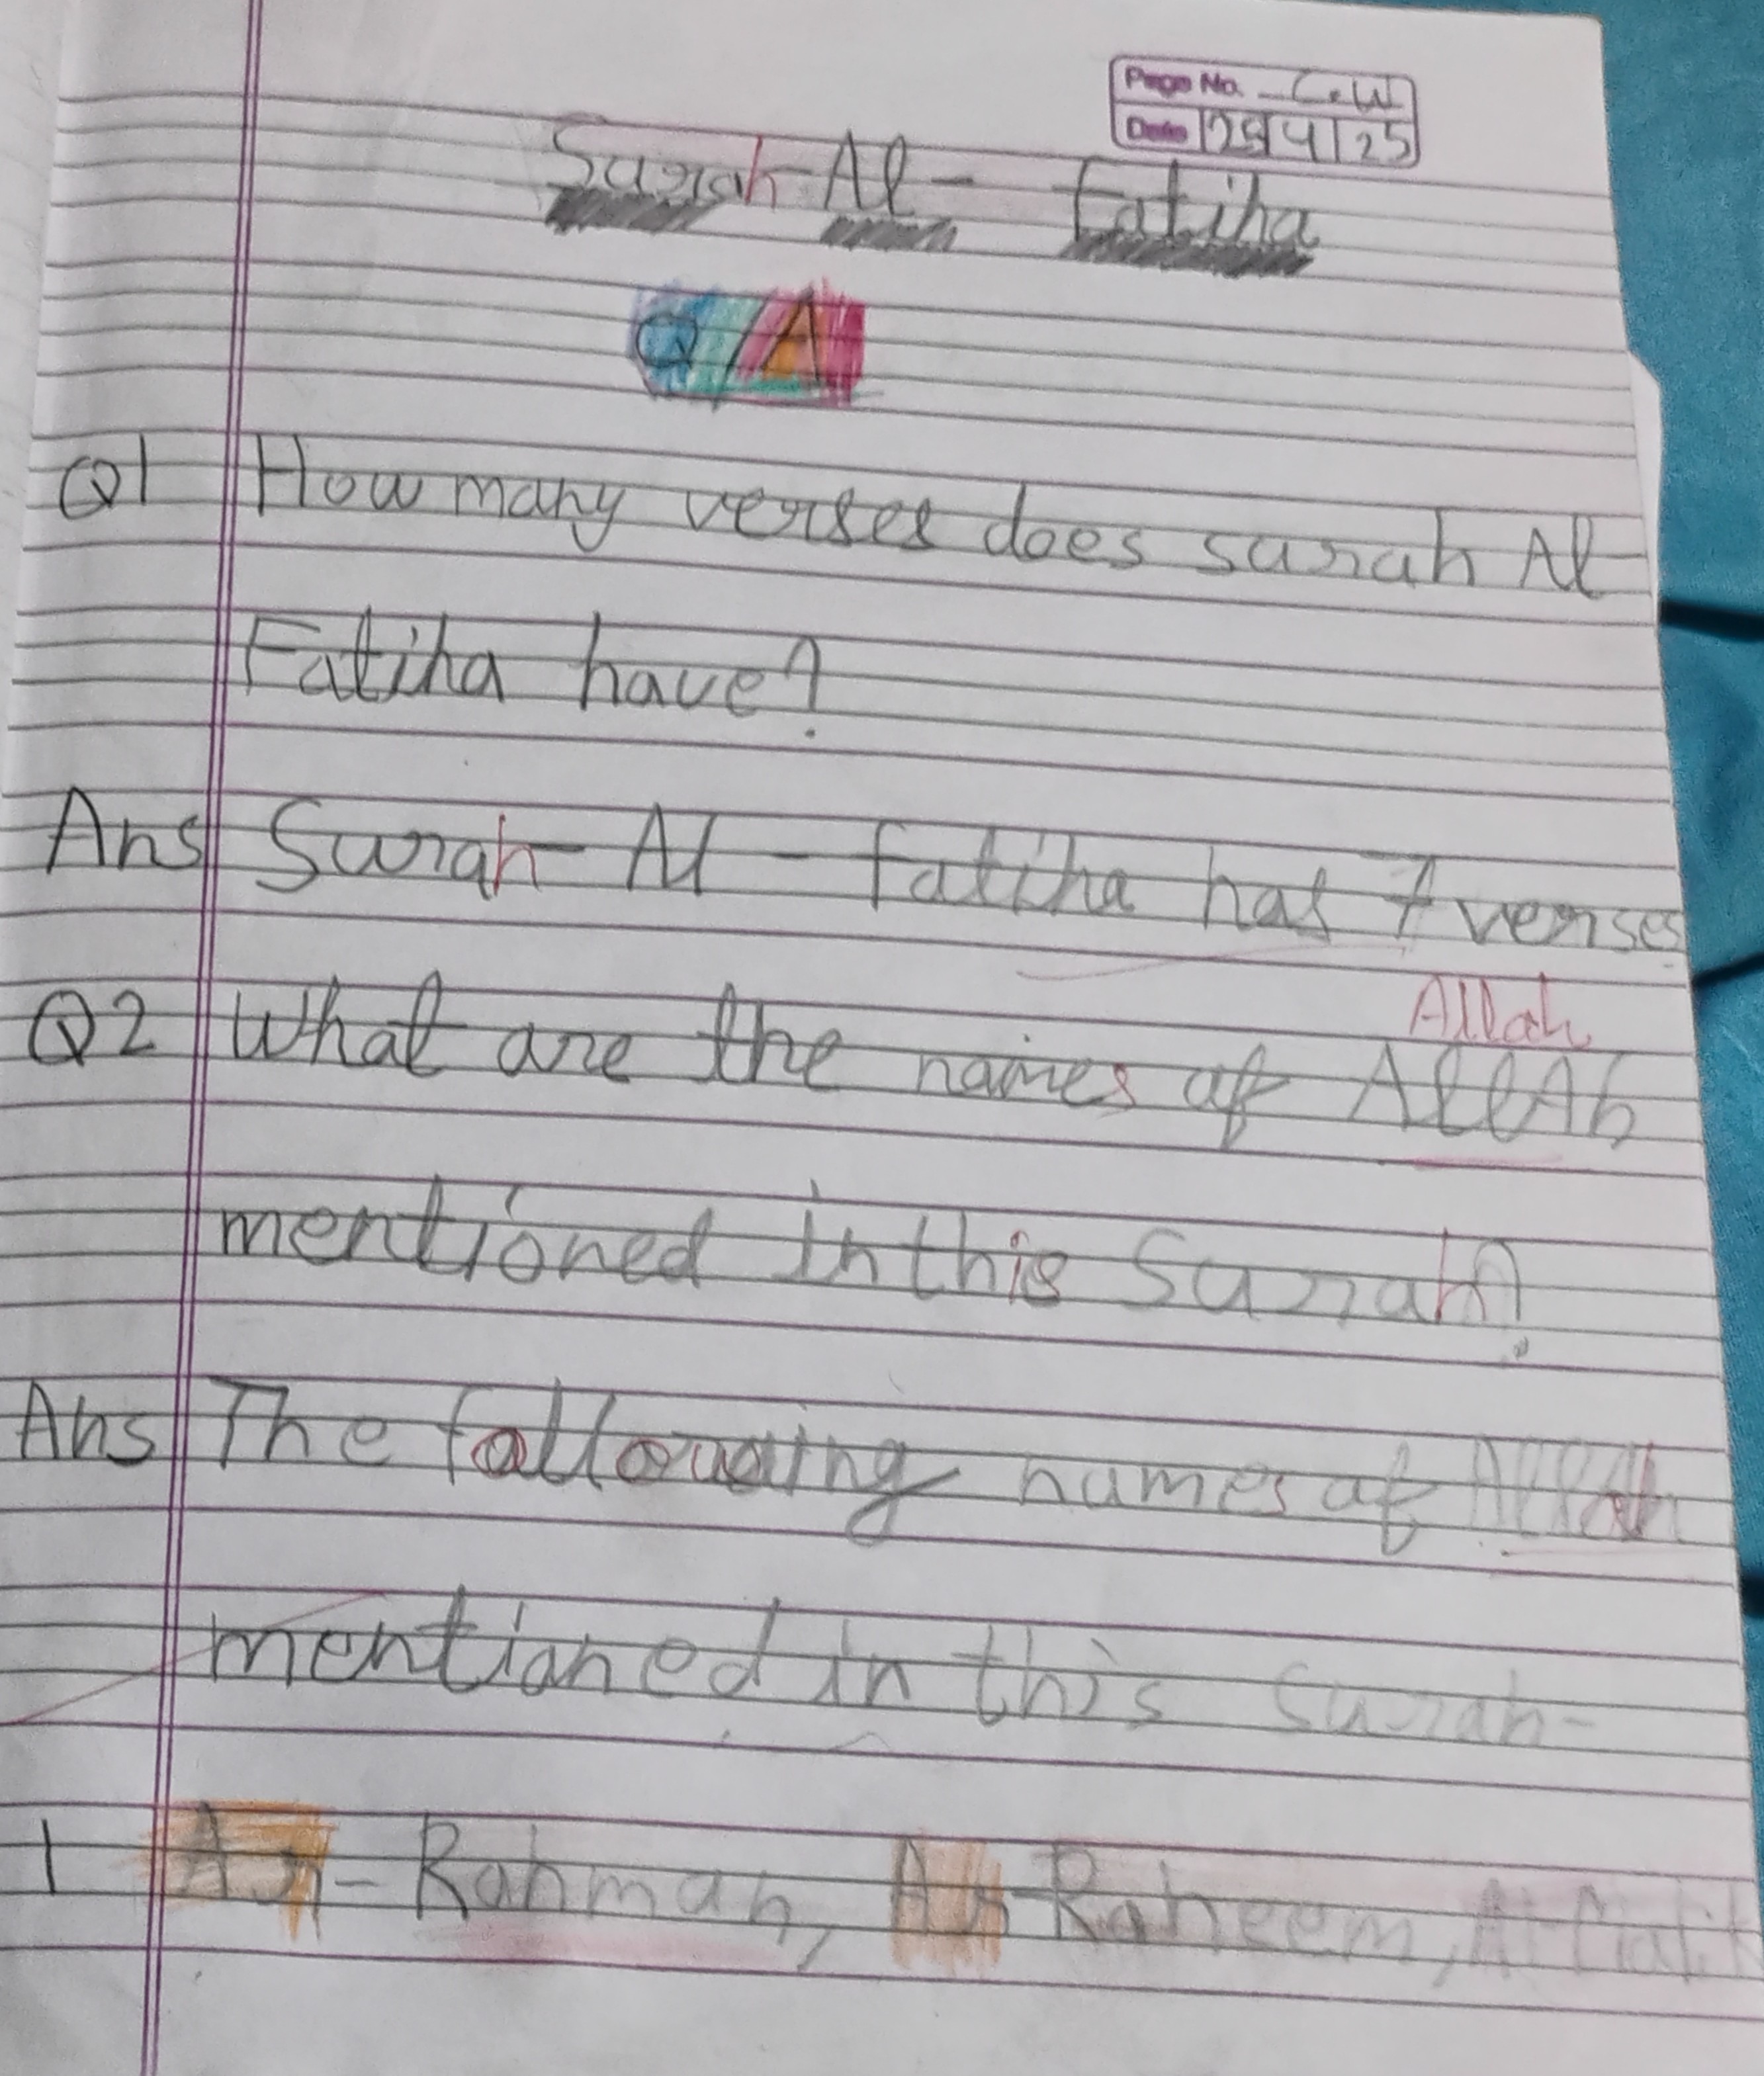 Page No. C.W
Date 25/4/25
Surah-Al- Fatiha
Q/A
Q1 How many verses does surah Al
Fatiha have?
Ans Surah-Al-Fatiha has 7 verses
Allah
Q2 What are the names of AllAh
mentioned in this Surah?
Ans The following names of Allah
mentioned in this Surah-
1 Ar-Rahman, Ar-Raheem, Al Malik